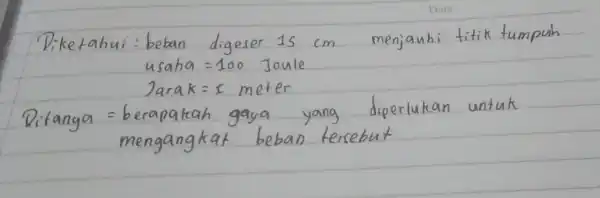 Diketahui : beban digeser 15 cm menjauhi titik tumpuh
usaha = 100 Joule
Jarak = 1 meter
Ditanya = berapakah gaya yang diperlukan untuk
mengangkat beban tersebut